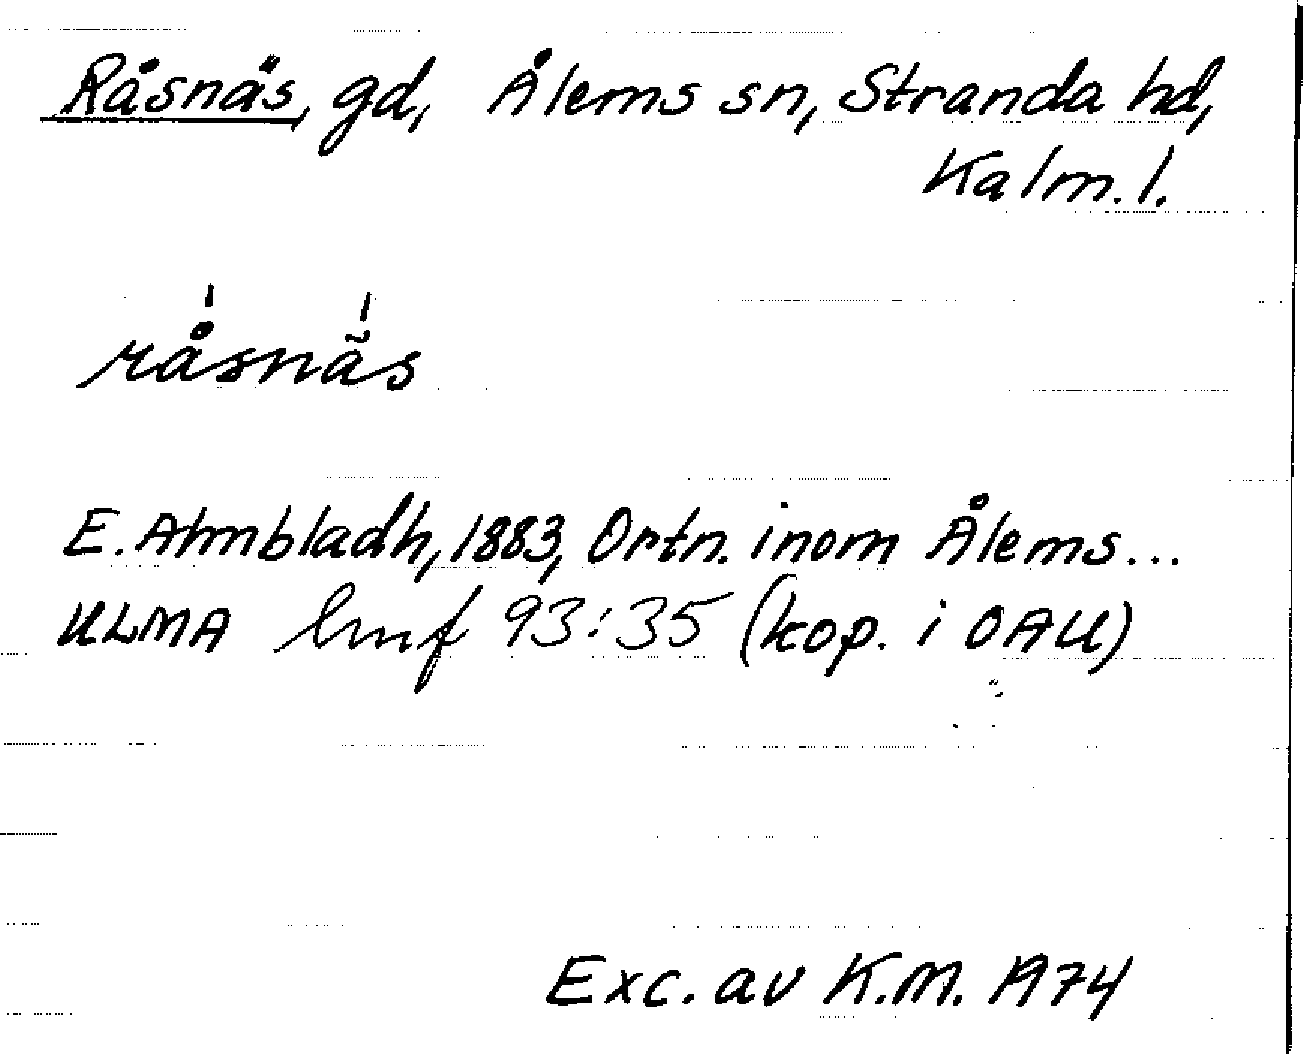 Råsnäs, gd, Ålems sn, Stranda hd,
Kalm. l.
råsnäs
E. Almbladh, 1883, Ortn. inom Ålems...
ULMA hmf 93:35 (kop. i OAU)
Exc. av K.M. 1974